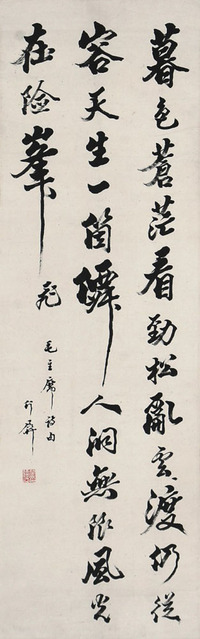 暮色蒼茫看勁松亂雲渡仍從
容天生一箇僊人洞無限風光
在險峯
飛
毛主席詩句